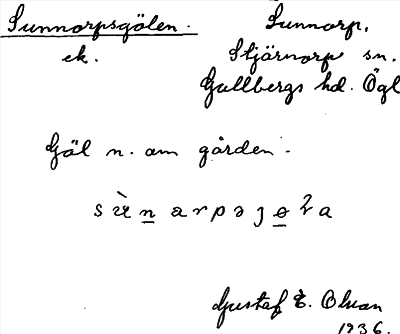 Sunnorpsgölen.
ek.
Sunnorp,
Stjärnorp sn.
Gullbergs hd. Ögl
Göl n. om gården.
Gustaf E. Olson
1936.